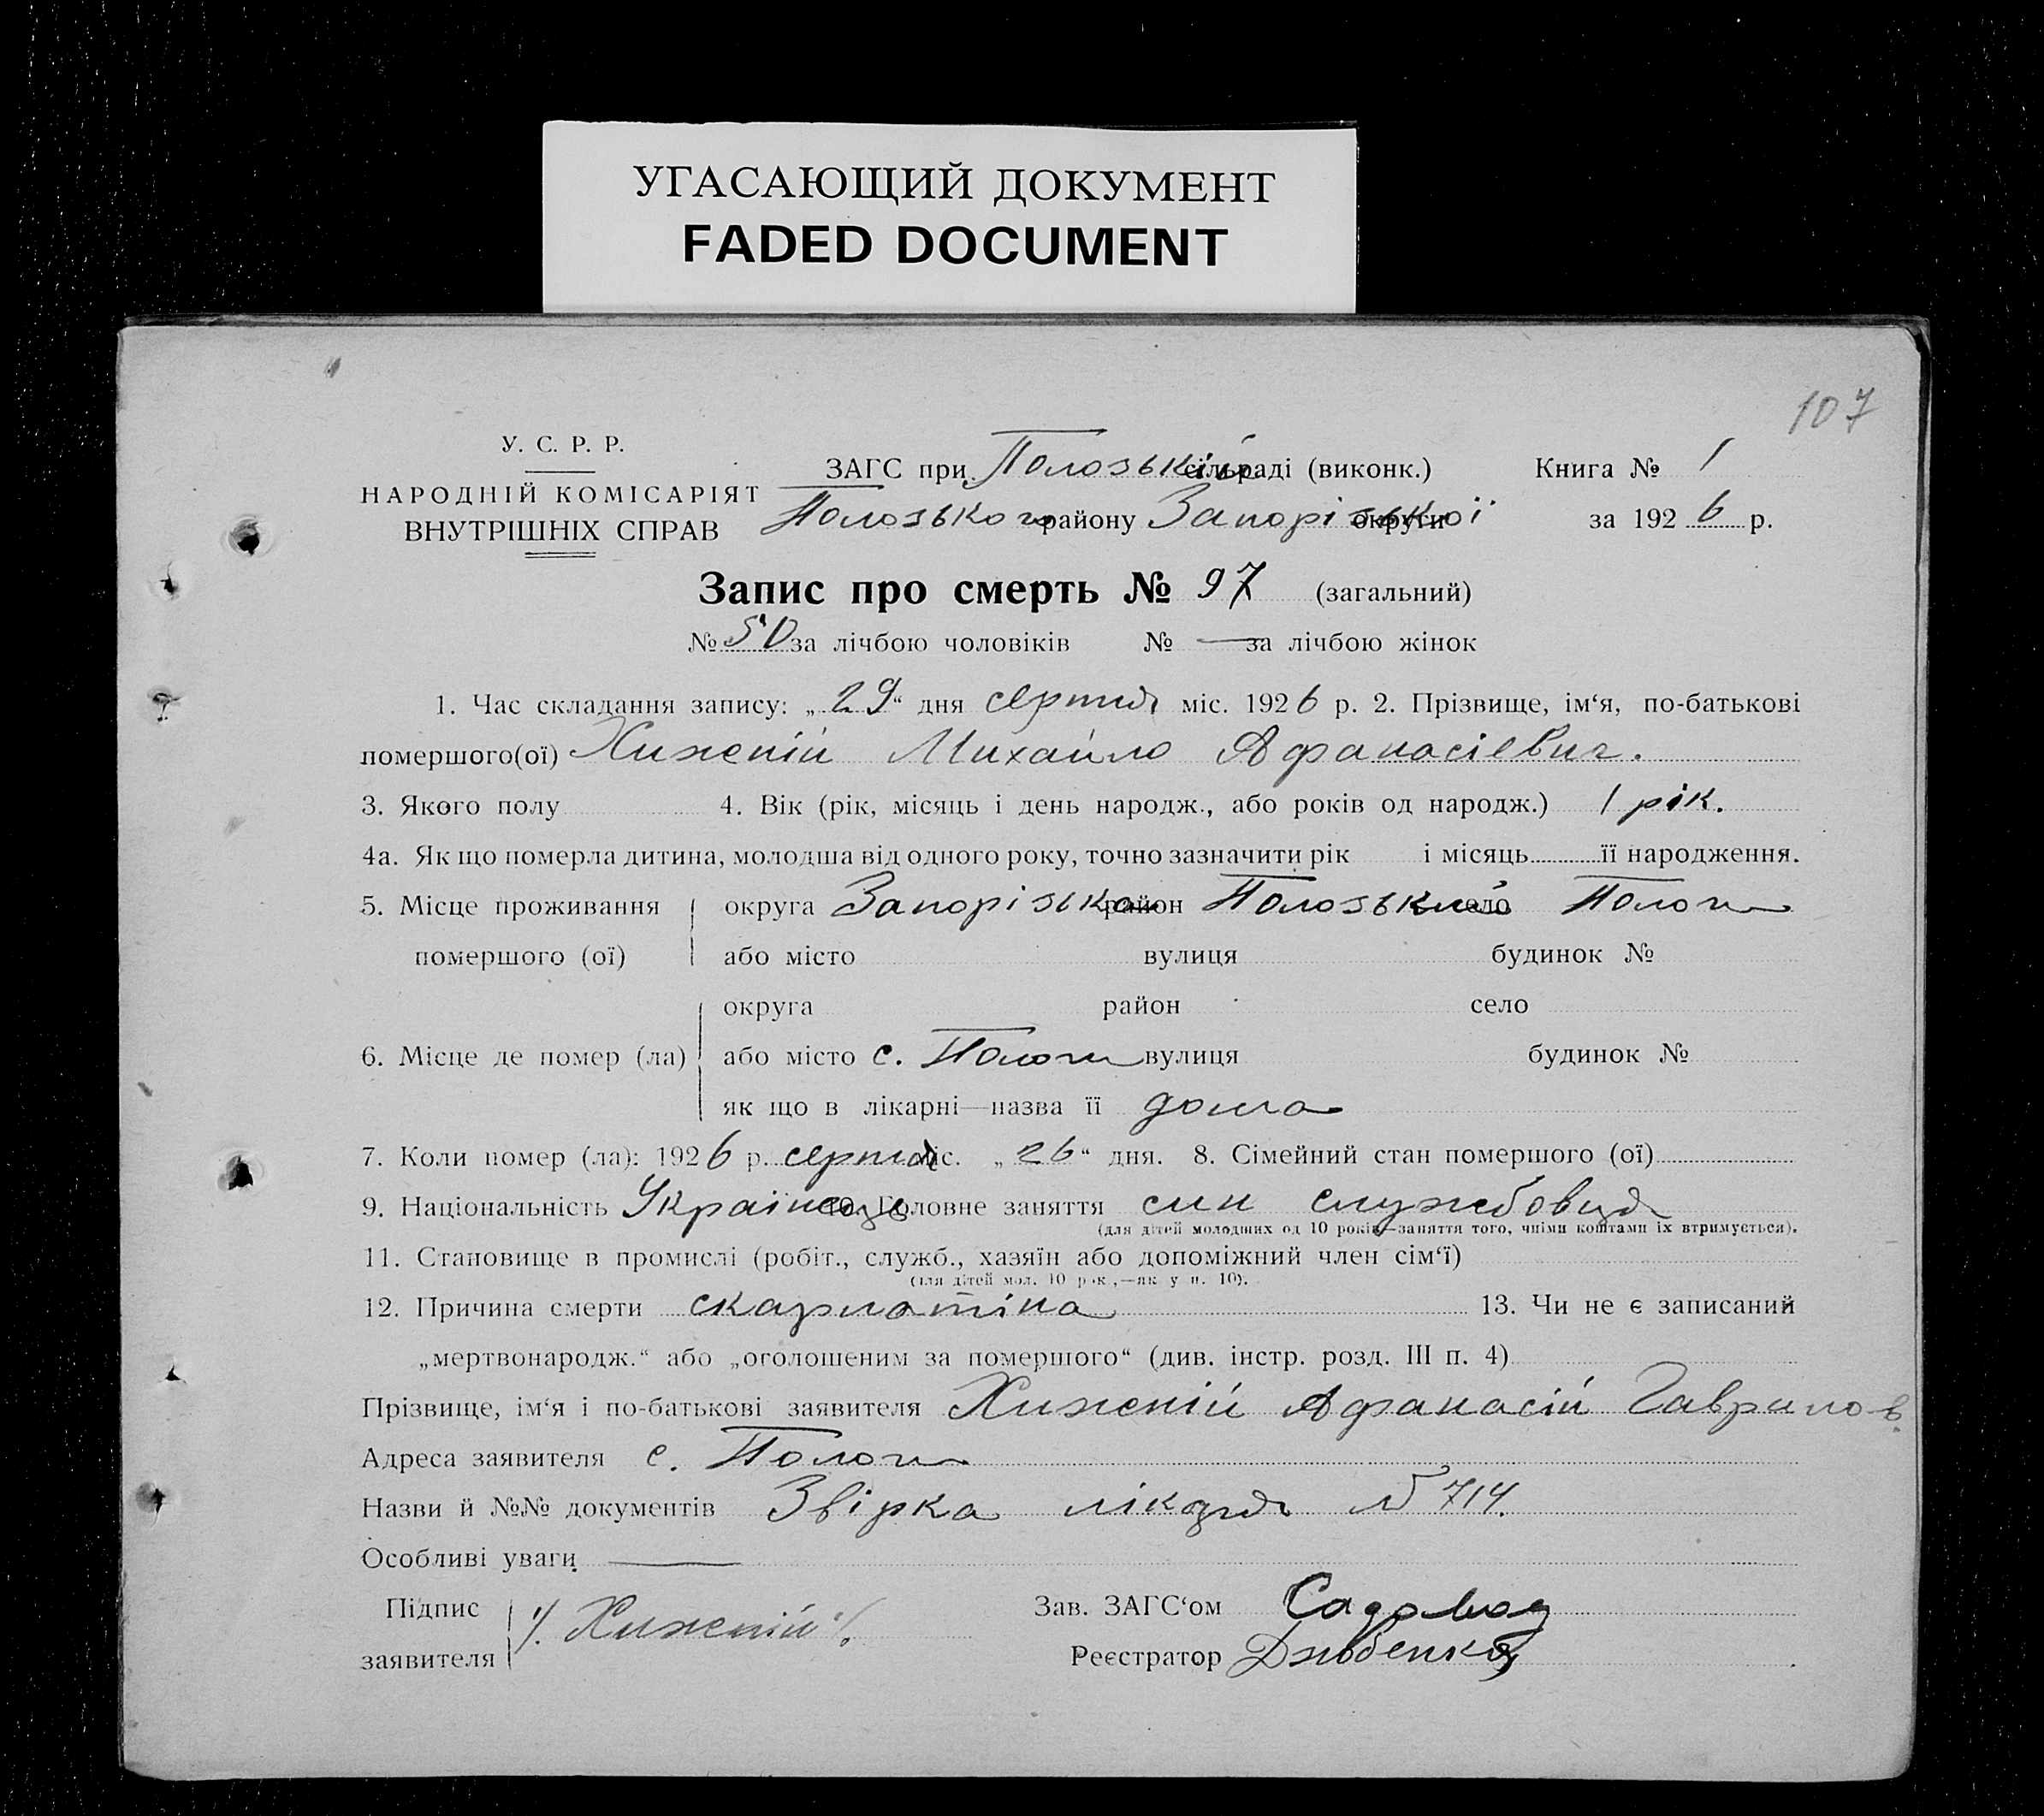 УГАСАЮЩИЙ ДОКУМЕНТ
FADED DOCUMENT
107
У. С. Р. Р.
НАРОДНІЙ КОМІСАРІЯТ
ВНУТРІШНІХ СПРАВ
ЗАГС при Полозькій сільраді (виконк.) Книга № 1
Полозького району Запорізької округи за 1926 р.
Запис про смерть № 97 (загальний)
№ 50 за лічбою чоловіків № — за лічбою жінок
1. Час складання запису: „29“ дня серпня міс. 1926 р. 2. Прізвище, ім‘я, по-батькові
помершого(ої) Хижній Михайло Афанасіевич.
3. Якого полу 4. Вік (рік, місяць і день народж., або років од народж.) 1 рік.
4а. Як що померла дитина, молодша від одного року, точно зазначити рік і місяць її народження.
5. Місце проживання округа Запорізька район Полозький село Пологи
помершого (ої) або місто вулиця будинок №
округа район село
6. Місце де помер (ла) або місто с. Пологи вулиця будинок №
як що в лікарні—назва її дома
7. Коли помер (ла): 1926 р. серпня міс. „26“ дня. 8. Сімейний стан помершого (ої)
9. Національність Українець 10. Головне заняття син службовця
(для дітей молодших од 10 років—заняття того, чиїми коштами їх втримується).
11. Становище в промислі (робіт., служб., хазяїн або допоміжний член сім‘ї)
(для дітей мол. 10 рок.,—як у п. 10).
12. Причина смерти скарлатіна 13. Чи не є записаний
„мертвонародж.“ або „оголошеним за помершого“ (див. інстр. розд. III п. 4)
Прізвище, ім‘я і по-батькові заявителя Хижній Афанасій Гаврилов.
Адреса заявителя с. Пологи
Назви й №№ документів Звірка лікаря № 714.
Особливі уваги —
Підпис Хижній Зав. ЗАГС‘ом
заявителя Реєстратор